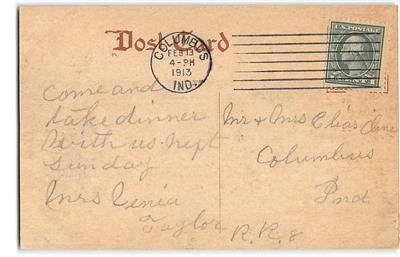 Post Card
COLUMBUS
FEB 13
4-PM
1913
IND.
U.S. POSTAGE
Come and
take dinner
with us next
Sunday
Mrs
Taylor
Mr & Mrs Elias
Columbus
Ind.
R.R. 8